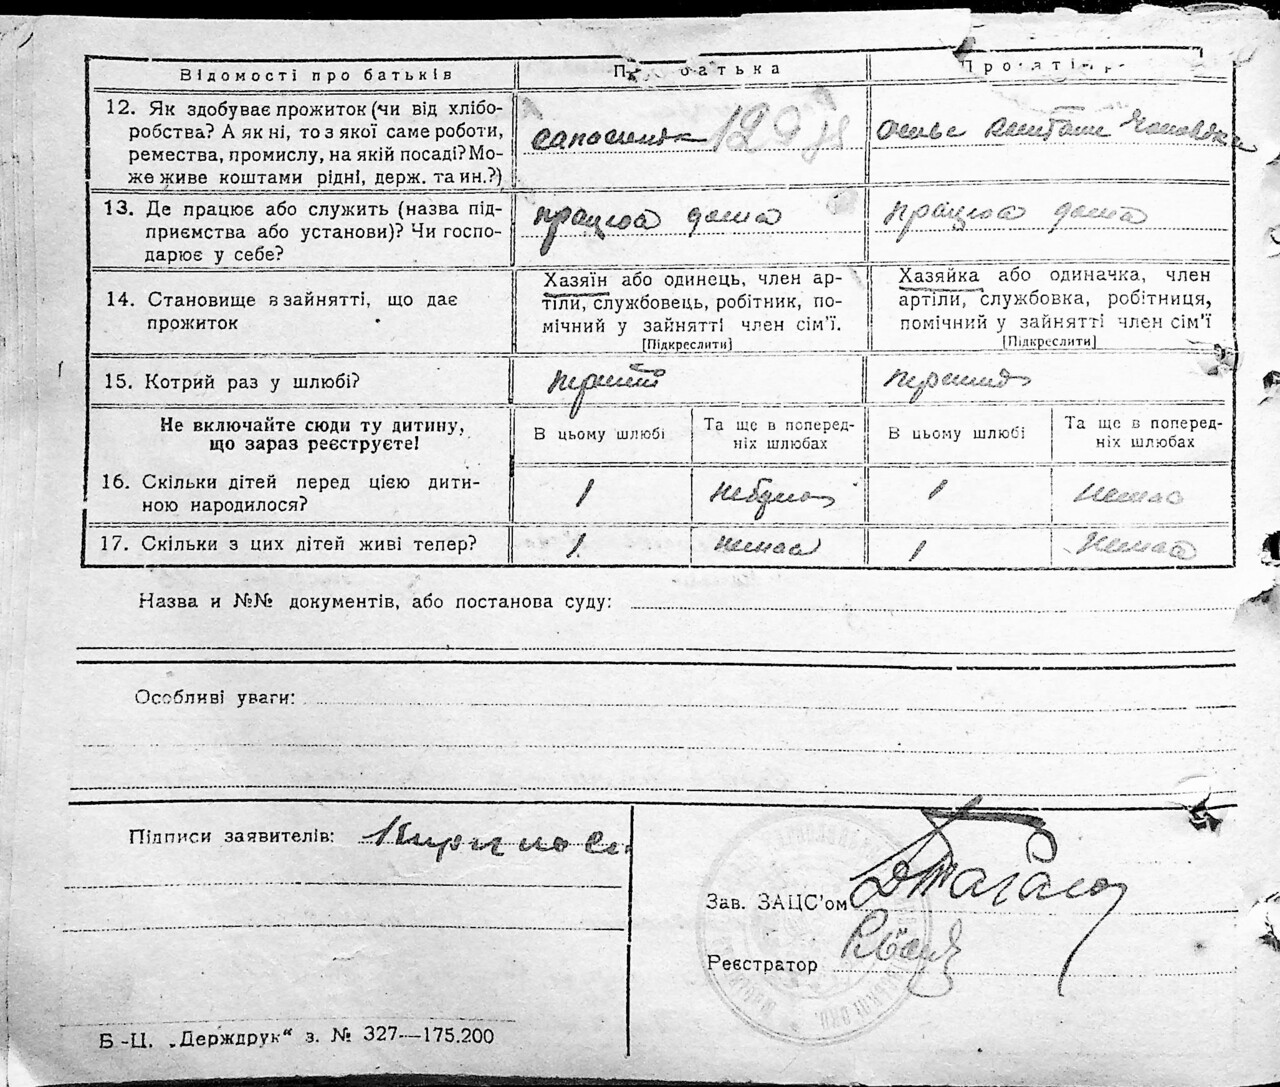 Відомості про батьків
батька
12. Як здобуває прожиток (чи від хлібо-
робства? А як ні, то з якої саме роботи,
ремества, промислу, на якій посаді? Мо-
же живе коштами рідні, держ. та ин.?)
13. Де працює або служить (назва під-
приємства або установи)? Чи госпо-
дарює у себе?
працюа дома
працюа дома
14. Становище в зайнятті, що дає
прожиток
Хазяїн або одинець, член ар-
тіли, службовець, робітник, по-
мічний у зайнятті член сім'ї.
[Підкреслити]
Хазяйка або одиначка, член
артіли, службовка, робітниця,
помічний у зайнятті член сім'ї
[Підкреслити]
15. Котрий раз у шлюбі?
перший
Не включайте сюди ту дитину,
що зараз реєструєте!
В цьому шлюбі
Та ще в поперед-
ніх шлюбах
В цьому шлюбі
Та ще в поперед-
ніх шлюбах
16. Скільки дітей перед цією дити-
ною народилося?
1
1
немаа
17. Скільки з цих дітей живі тепер?
1
немаа
1
немаа
Назва и №№ документів, або постанова суду:
Особливі уваги:
Підписи заявителів:
Зав. ЗАЦС'ом
Реєстратор
Б-Ц. „Держдрук“ з. № 327—175.200